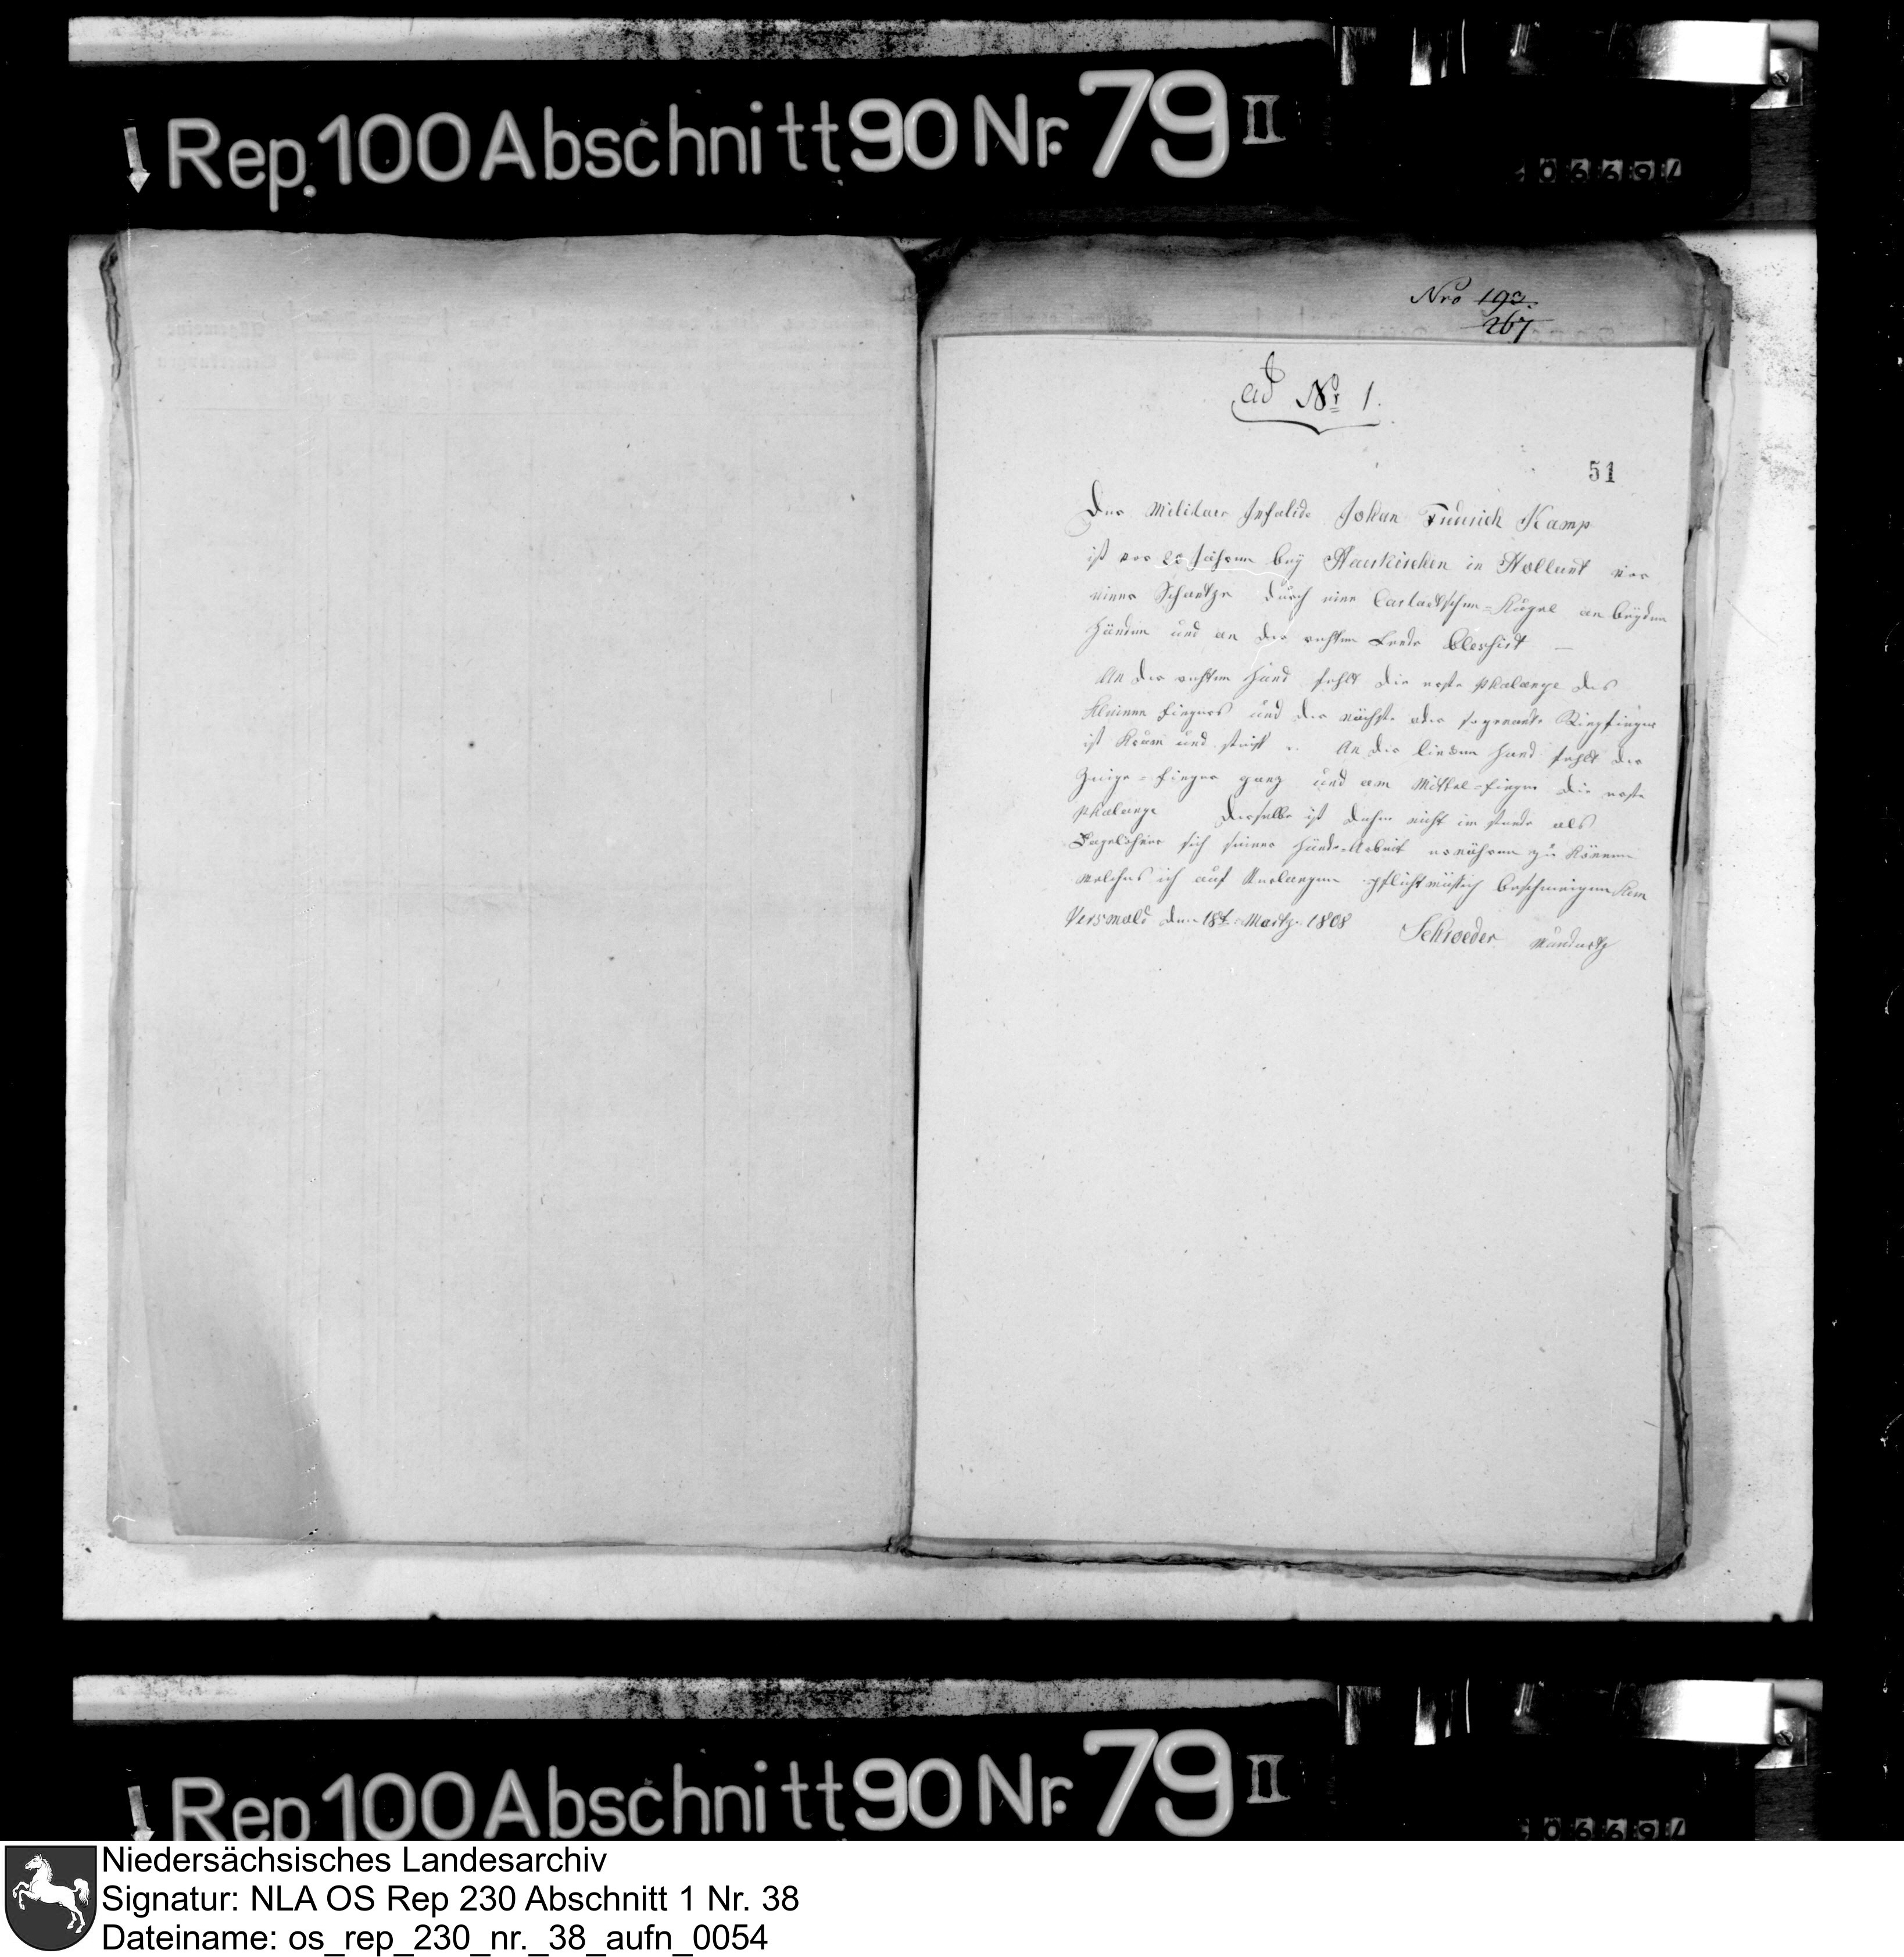 Rep. 100 Abschnitt 90 Nr. 79 II
Nro 190.
267
ad Nr. 1.
51
Der Militair Invalide Johan Friderich Kamp
ist vor Jahren bey in Hollant vor
einer Schantze durch eine Cartaetschen=Kugel an beyden
Händen und an der rechten Lende blessirt —
An der rechten Hand fehlt die erste Phalange des
kleinen Fingers und der nächste oder sogenante Ringfinger
ist krum und steif. An der linken Hand fehlt der
Zeige=Finger ganz und am Mittel=Finger die erste
Phalange Derselbe ist daher nicht im stande als
Tagelöhner sich seiner Hände=Arbeit ernähren zu können
welches ich auf Verlangen pflichtmässich bescheinigen kan
Versmold den 18t Martz 1808 Schroeder Wundartz
Rep 100 Abschnitt 90 Nr. 79 II
Niedersächsisches Landesarchiv
Signatur: NLA OS Rep 230 Abschnitt 1 Nr. 38
Dateiname: os_rep_230_nr._38_aufn_0054